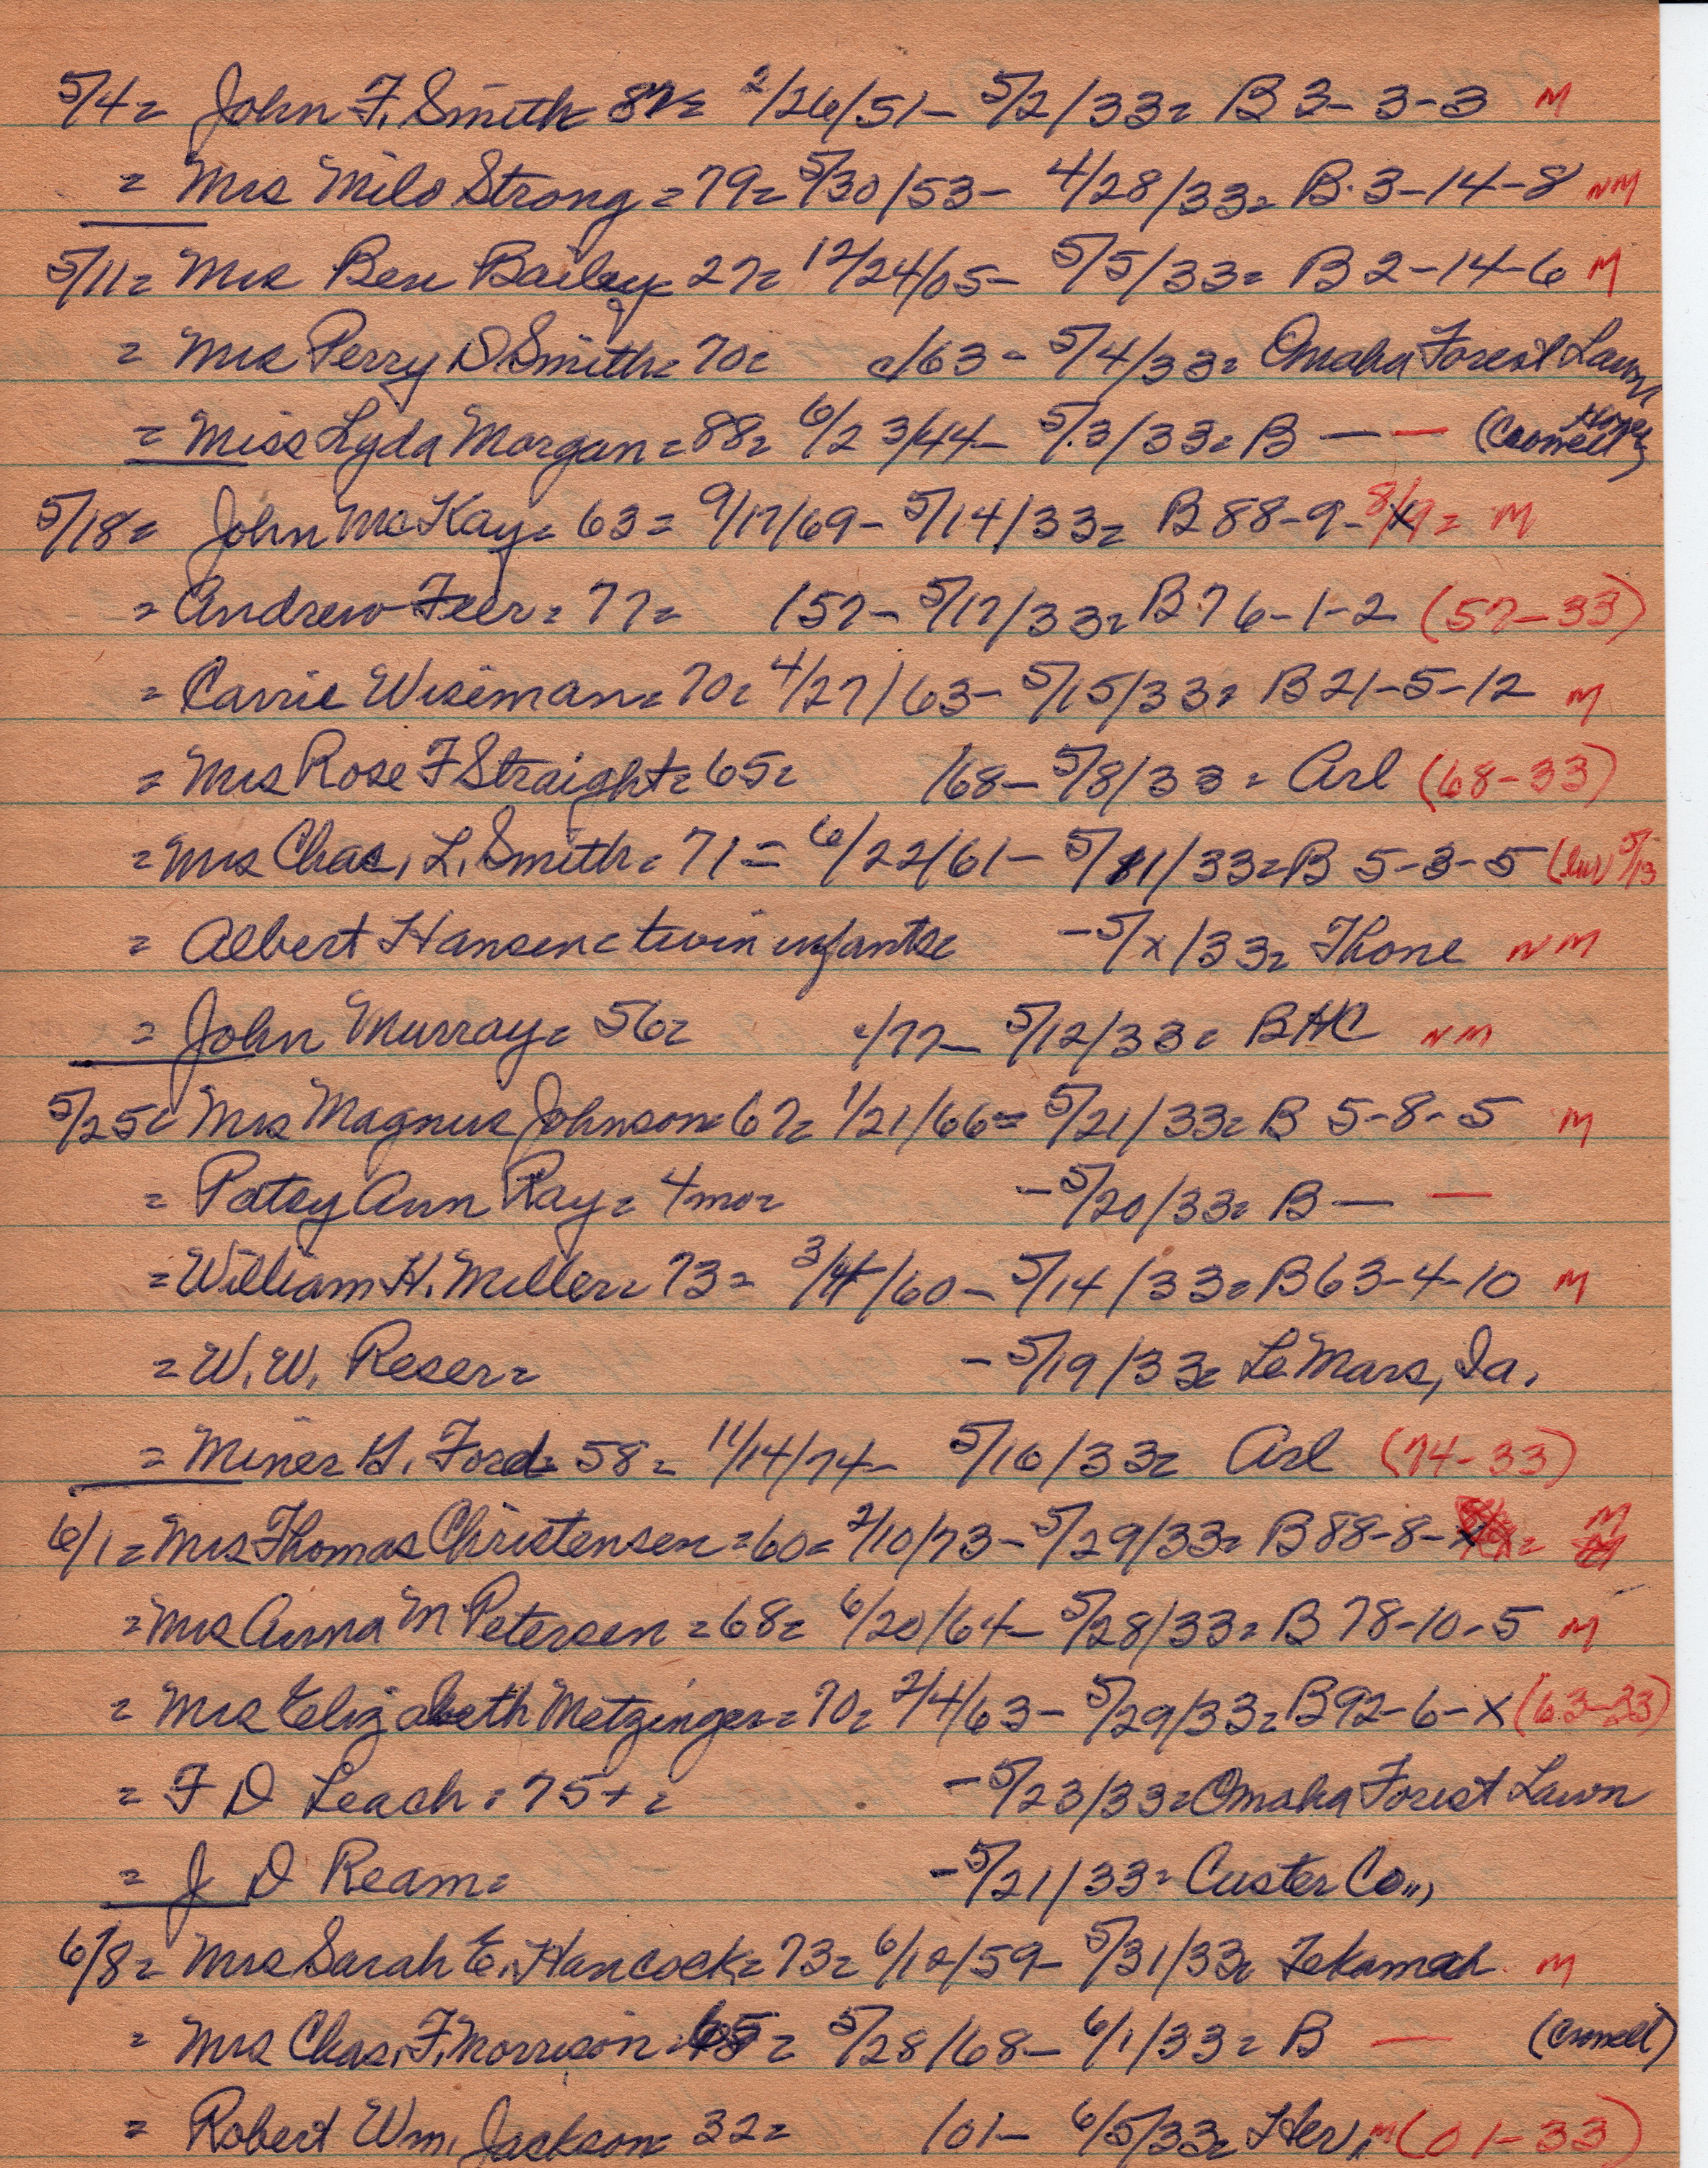 5/4= John F. Smith= 82= 2/26/51- 5/2/33= B 3-3-3 M
= Mrs Milo Strong=79= 5/30/53- 4/28/33= B.3-14-8 NM
5/11= Mrs Ben Bailey= 27= 12/24/05- 5/5/33= B 2-14-6 M
= Mrs Perry D Smith= 70= c/63- 5/4/33= Omaha Forest Lawn
= Miss Lyda Morgan=88= 6/23/44- 5/3/33= B — — (Crowell Home)
5/18= John McKay= 63= 9/17/69- 5/14/33= B 88-9-x 8/9= M
= Andrew Feer= 77= /57- 5/17/33= B 76-1-2 (57-33)
= Carrie Wiseman= 70= 4/27/63- 5/15/33= B 21-5-12 M
= Mrs Rose F Straight= 65= /68- 5/8/33= Arl (68-33)
= Mrs Chas. L. Smith= 71= 6/22/61- 5/11/33= B 5-3-5 (bur) 5/13
= Albert Hansen= twin infants= -5/x/33= Thone NM
= John Murray= 56= c/77- 5/12/33= BHC NM
5/25= Mrs Magnus Johnson=67= 1/21/66= 5/21/33= B 5-8-5 M
= Patsy Ann Ray= 4mo= -5/20/33= B — —
= William H. Miller= 73= 3/4/60- 5/14/33= B 63-4-10 M
= W. W. Reser= -5/19/33= Le Mars, Ia.
= Miner H. Ford= 58= 11/14/74- 5/16/33= Arl (74-33)
6/1= Mrs Thomas Christensen=60= 2/10/73- 5/29/33= B 88-8-x= M
= Mrs Anna M Petersen=68= 6/20/64- 5/28/33= B 78-10-5 M
= Mrs Elizabeth Metzinger=70= 2/4/63- 5/29/33= B 92-6-x (63-33)
= F D Leach= 75+= -5/23/33= Omaha Forest Lawn
= J D Ream= -5/21/33= Custer Co.,
6/8= Mrs Sarah E. Hancock=73= 6/12/59- 5/31/33= Tekamah M
= Mrs Chas. F. Morrison= 65= 5/28/68- 6/1/33= B — (Crowell)
= Robert Wm. Jackson= 32= /01- 6/5/33= Her, M (01-33)